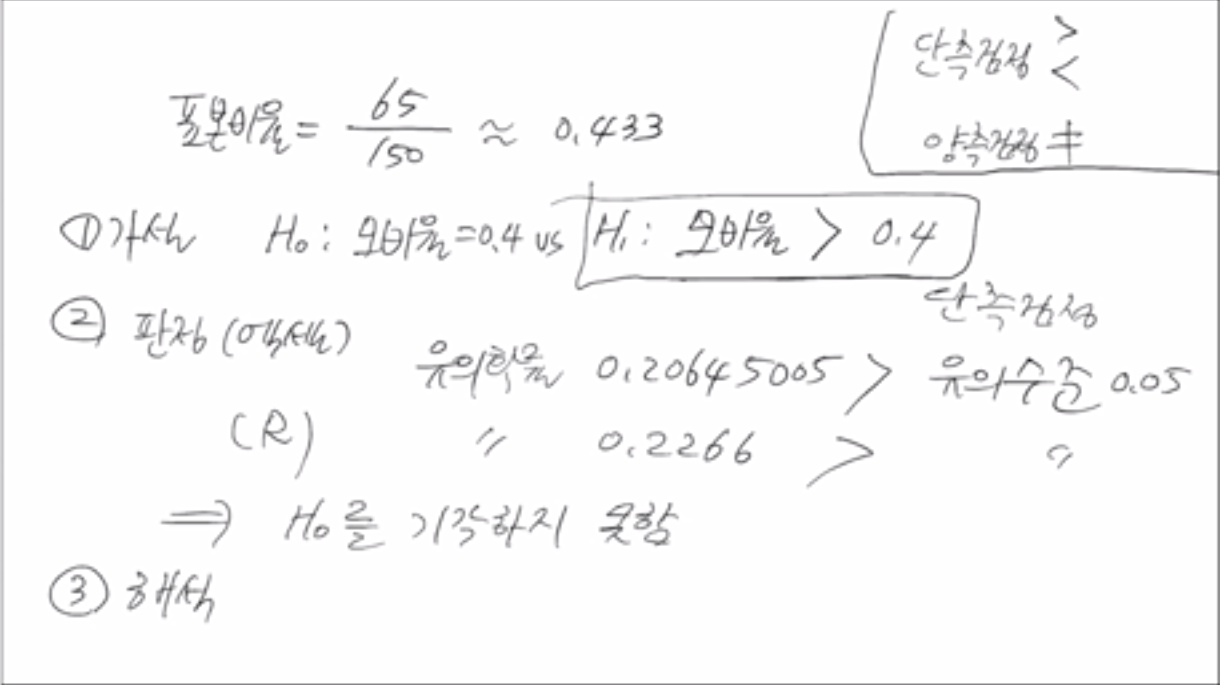 단측검정 >
<
양측검정 ≠
표본비율 = 65/150 ≈ 0.433
① 가설 H₀ : 모비율 = 0.4 vs H₁ : 모비율 > 0.4
단측검정
② 판정 (엑셀) 유의확률 0.20645005 > 유의수준 0.05
(R) 〃 0.2266 > 〃
⇒ H₀를 기각하지 못함
③ 해석